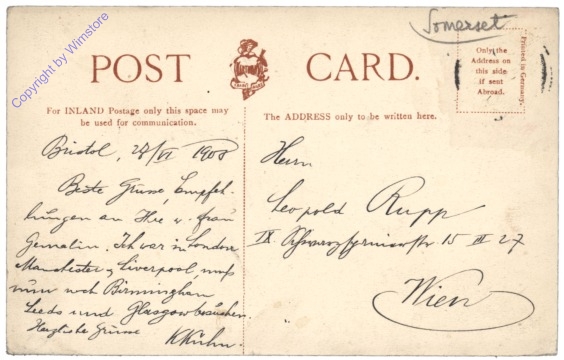 Copyright by Wimstore
Somerset
POST CARD.
Only the
Address on
this side
if sent
Abroad.
Printed in Germany.
For INLAND Postage only this space may
be used for communication.
The ADDRESS only to be written here.
Bristol, 1908
Beste Grüsse, Empfeh-
lungen an Ihre Frau
Gemalin. Ich war in London
Manchester, Liverpool, muß
nun noch Birmingham
Leeds und Glasgow besuchen.
Herzliche Grüsse
KKuhn.
Herrn
Leopold Rupp
IX 15 III 27
Wien